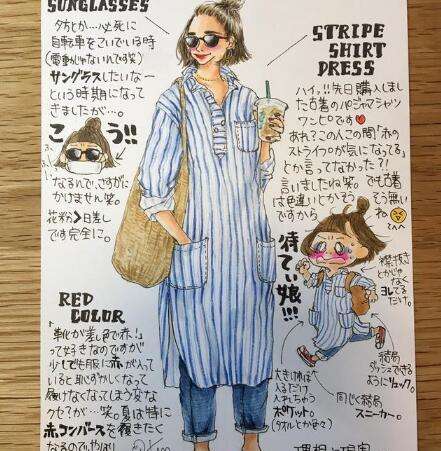 SUNGLASSES
夕方とか…必死に
自転車をこいでいる時
(電動じゃないんです笑)
サングラスしたいなー
という時期になって
きましたが…。
こう!!
なるんで、さすがに
かけません笑。
花粉>日差し
です完全に。
STRIPE
SHIRT
DRESS
ハイッ!!先日購入しまし
た古着のパジャマシャツ
ワンピです
あれ?この人この間「赤の
ストライプが気になってる」
とか言ってなかった?!
言いましたね笑。でも古着
は色違いとかそう無い
ですから ね
待てぃ娘!!!
襟抜き
とかじゃなく
ヨレてる
だけ。
結局
ダンスできる
ようにリュック。
同じく結局
スニーカー。
大きければ
入るだけ
入れちゃう
ポケット。
(タオルとか色々)
RED
COLOR
「靴が差し色で赤!」
って好きなのですが
少しでも服に赤が入って
いると恥ずかしくなって
履けなくなってしまう変な
クセが…笑。夏は特に
赤コンバースを履きたく
なるのでやはり
理想と現実